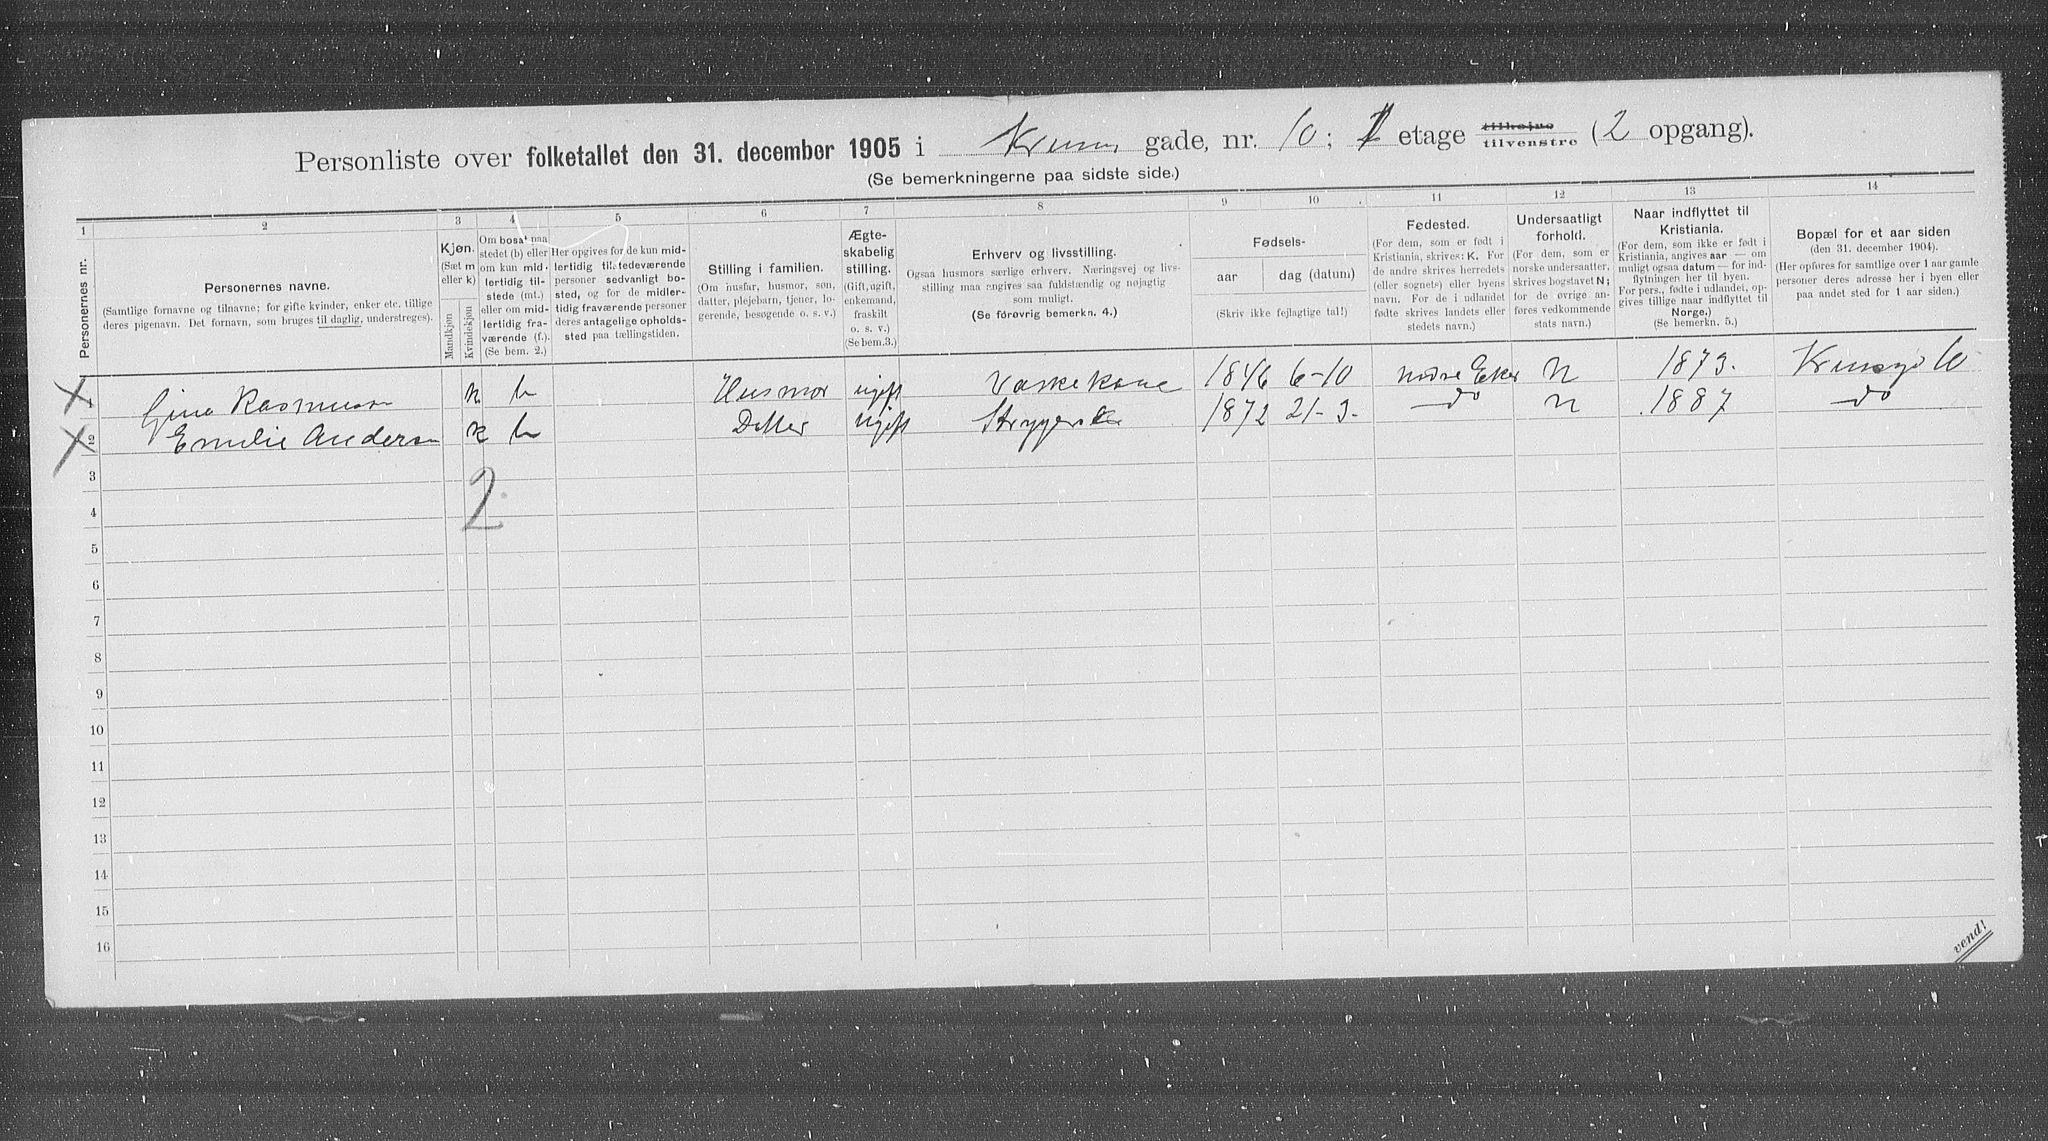 Personliste over folketallet den 31. december 1905 i Kruses gade, nr. 10; 1 etage tilhøire tilvenstre (2 opgang).
(Se bemerkningerne paa sidste side.)
1 2 3 4 5 6 7 8 9 10 11 12 13 14
Personernes nr.
Personernes navne.
(Samtlige fornavne og tilnavne; for gifte kvinder, enker etc. tillige
deres pigenavn. Det fornavn, som bruges til daglig, understreges).
Kjøn.
(Sæt m
eller k)
Mandkjøn
Kvindekjøn
Om bosat paa
stedet (b) eller
om kun mid-
lertidig til-
stede (mt.)
eller om mid-
lertidig fra-
værende (f.).
(Se bem. 2.)
Her opgives for de kun mid-
lertidig tilstedeværende
personer sedvanligt bo-
sted, og for de midler-
tidig fraværende personer
deres antagelige opholds-
sted paa tællingstiden.
Stilling i familien.
(Om husfar, husmor, søn,
datter, plejebarn, tjener, lo-
gerende, besøgende o. s. v.)
Ægte-
skabelig
stilling.
(Gift, ugift,
enkemand,
fraskilt
o. s. v.)
(Se bem.3.)
Erhverv og livsstilling.
Ogsaa husmors særlige erhverv. Næringsvej og livs-
stilling maa angives saa fuldstændig og nøjagtig
som muligt.
(Se forøvrig bemerkn. 4.)
Fødsels-
aar dag (datum).
(Skriv ikke fejlagtige tal!)
Fødested.
(For dem, som er født i
Kristiania, skrives: K. For
de andre skrives herredets
(eller sognets) eller byens
navn. For de i udlandet
fødte skrives landets eller
stedets navn.)
Undersaatligt
forhold.
(For dem, som er
norske undersaatter,
skrives bogstavet N;
for de øvrige an-
føres vedkommende
stats navn.)
Naar indflyttet til
Kristiania.
(For dem, som ikke er født i
Kristiania, angives aar — om
muligt ogsaa datum — for ind-
flytningen her til byen.
For pers., fødte i udlandet, op-
gives tillige naar indflyttet til
Norge.)
(Se bemerkn. 5.)
Bopæl for et aar siden
(den 31. december 1904).
(Her opføres for samtlige over 1 aar gamle
personer deres adresse her i byen eller
paa andet sted for 1 aar siden.)
1 Gina Rasmussen k b Husmor ugift Vaskekone 1846 6-10 nedre Eker N 1873. Krusesg 10
2 Emilie Andersen k b Datter ugift Strygerske 1872 21-3. do N 1887 do
2
3
4
5
6
7
8
9
10
11
12
13
14
15
16
vend!